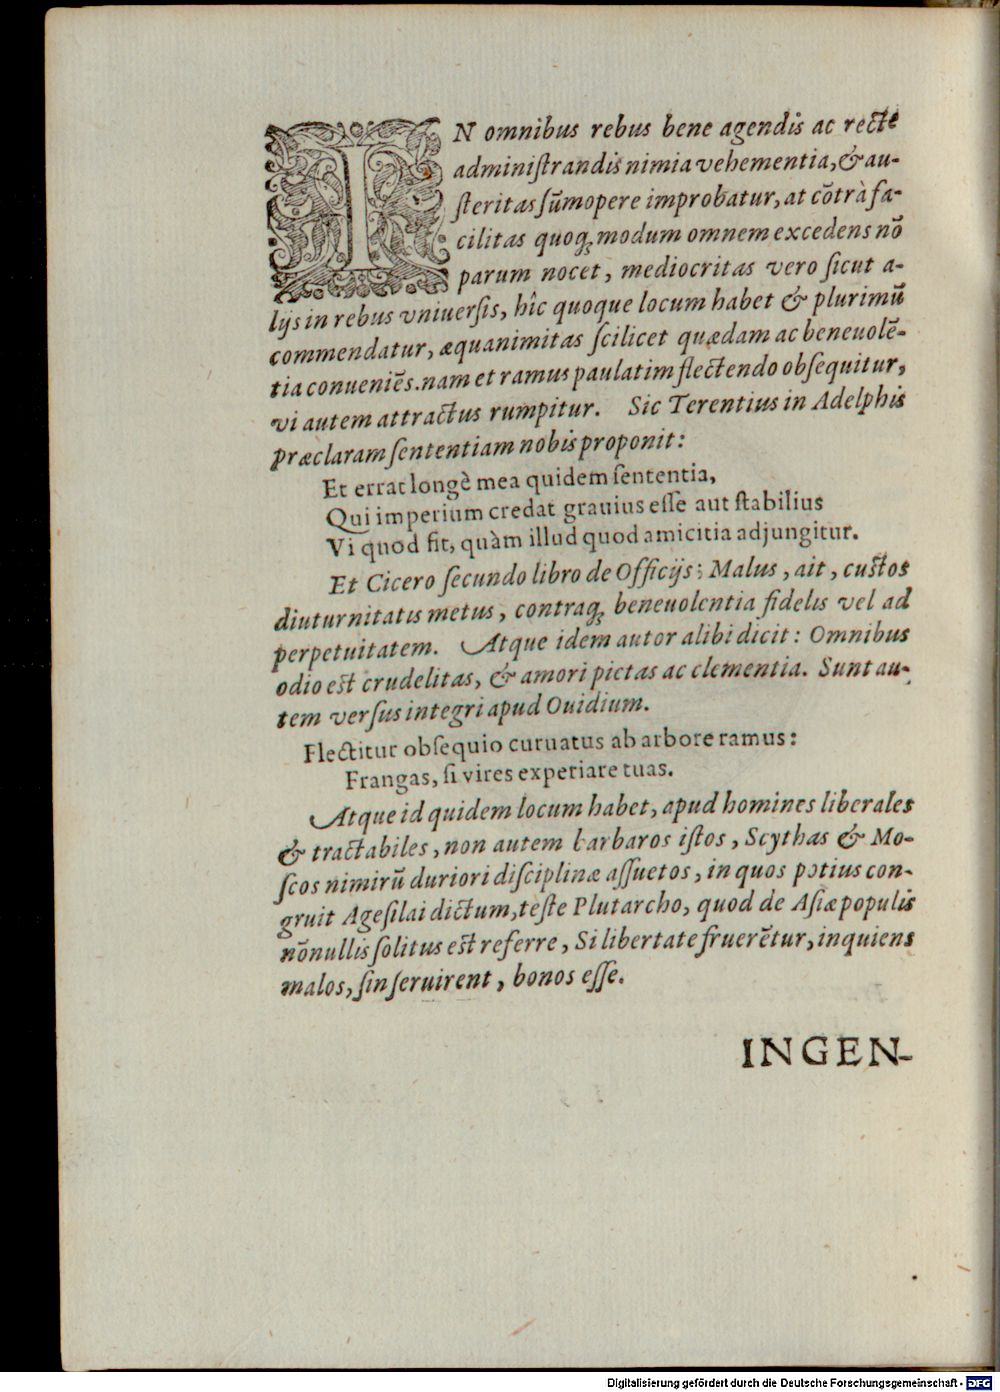 IN omnibus rebus bene agendis ac recte
administrandis nimia vehementia, & au-
steritas sũmopere improbatur, at cõtrà fa-
cilitas quoq; modum omnem excedens nõ
parum nocet, mediocritas vero sicut a-
lijs in rebus vniuersis, hîc quoque locum habet & plurimũ
commendatur, æquanimitas scilicet quædam ac beneuolẽ-
tia conueniẽs. nam et ramus paulatim flectendo obsequitur,
vi autem attractus rumpitur. Sic Terentius in Adelphis
præclaram sententiam nobis proponit:
Et errat longè mea quidem sententia,
Qui imperium credat grauius esse aut stabilius
Vi quod fit, quàm illud quod amicitia adjungitur.
Et Cicero secundo libro de Officijs; Malus, ait, custos
diuturnitatis metus, contraq; beneuolentia fidelis vel ad
perpetuitatem. Atque idem autor alibi dicit: Omnibus
odio est crudelitas, & amori pietas ac clementia. Sunt au-
tem versus integri apud Ouidium.
Flectitur obsequio curuatus ab arbore ramus:
Frangas, si vires experiare tuas.
Atque id quidem locum habet, apud homines liberales
& tractabiles, non autem barbaros istos, Scythas & Mo-
scos nimirũ duriori disciplinæ assuetos, in quos potius con-
gruit Agesilai dictum, teste Plutarcho, quod de Asiæ populis
nõnullis solitus est referre, Si libertate fruerẽtur, inquiens
malos, sin seruirent, bonos esse.
INGEN-
Digitalisierung gefördert durch die Deutsche Forschungsgemeinschaft - DFG